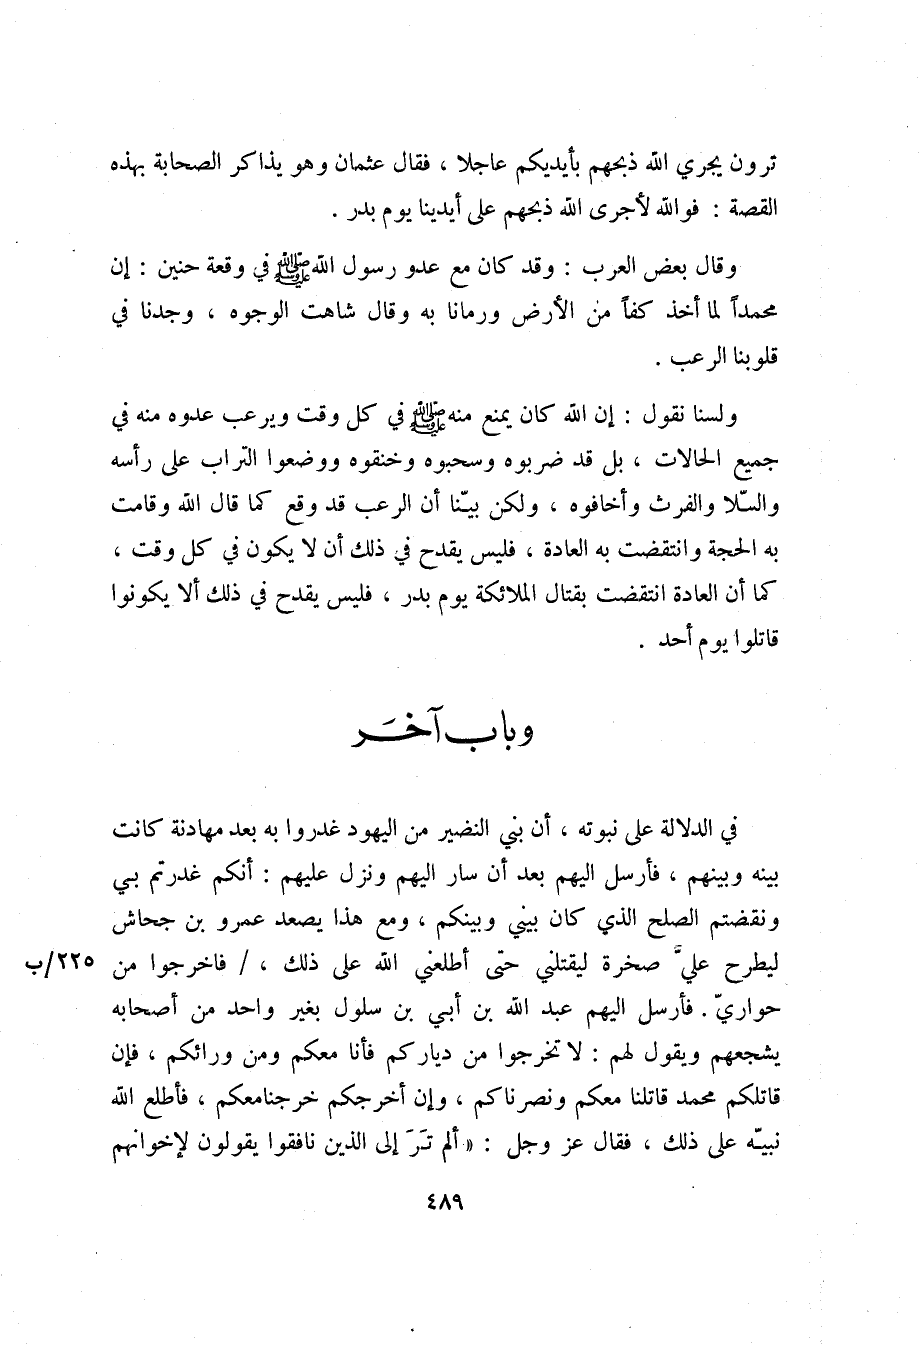 ترون يجري الله ذبحهم بأيديكم عاجلا ، فقال عثمان وهو يذاكر الصحابة بهذه
القصة : فوالله لأجرى الله ذبحهم على أيدينا يوم بدر .
وقال بعض العرب : وقد كان مع عدو رسول الله ﷺ في وقعة حنين : إن
محمداً لما أخذ كفاً من الأرض ورمانا به وقال شاهت الوجوه ، وجدنا في
قلوبنا الرعب .
ولسنا نقول : إن الله كان يمنع منه ﷺ في كل وقت ويرعب عدوه منه في
جميع الحالات ، بل قد ضربوه وسحبوه وخنقوه ووضعوا التراب على رأسه
والسّلا والفرث وأخافوه ، ولكن بيّنا أن الرعب قد وقع كما قال الله وقامت
به الحجة وانتقضت به العادة ، فليس يقدح في ذلك أن لا يكون في كل وقت ،
كما أن العادة انتقضت بقتال الملائكة يوم بدر ، فليس يقدح في ذلك ألا يكونوا
قاتلوا يوم أحد .
وباب آخَر
في الدلالة على نبوته ، أن بني النضير من اليهود غدروا به بعد مهادنة كانت
بينه وبينهم ، فأرسل اليهم بعد أن سار اليهم ونزل عليهم : أنكم غدرتم بي
ونقضتم الصلح الذي كان بيني وبينكم ، ومع هذا يصعد عمرو بن جحاش
ليطرح عليّ صخرة ليقتلني حتى أطلعني الله على ذلك ، / فاخرجوا من ٢٢٥/ب
حواريّ . فأرسل اليهم عبد الله بن أبي بن سلول بغير واحد من أصحابه
يشجعهم ويقول لهم : لا تخرجوا من دياركم فأنا معكم ومن ورائكم ، فإن
قاتلكم محمد قاتلنا معكم ونصرناكم ، وإن أخرجكم خرجنامعكم ، فأطلع الله
نبيّه على ذلك ، فقال عز وجل : « ألم تَرَ إلى الذين نافقوا يقولون لإخوانهم
٤٨٩